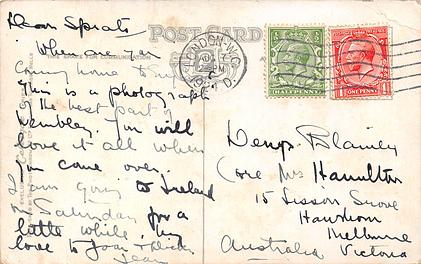 Dear Sprats
POST CARD
When are you
THIS SPACE FOR COMMUNICATION
coming home to
This is a photograph
of the best part of
Wembley. You will
love it all when
you come over.
I am going to Ireland
on Saturday for a
little while. My
love to Joan &
Jean
LONDON. W.C.
HALFPENNY
ONE PENNY
Blainey
Care Mrs Hamilton
15 Lisson Grove
Hawthorn
Melbourne
Australia Victoria